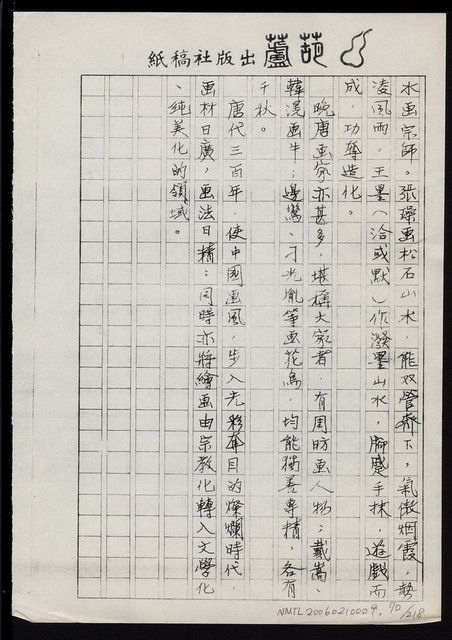 紙稿社版出蘆葫
水画宗師。張璪画松石山水，能双管齊下，氣傲烟霞，勢
凌風雨。王墨（洽或默）作潑墨山水，腳蹙手抹，遊戲而
成，功奪造化。
晚唐画家亦甚多，堪稱大家者，有周昉画人物；戴嵩、
韓滉画牛；邊鸞、刁光胤等画花鳥，均能獨善專精，各有
千秋。
唐代三百年，使中國画風，步入光彩奪目的燦爛時代，
画材日廣，画法日精；同時亦將繪画由宗教化轉入文學化
、純美化的領域。
NMTL20060210009. 70/218